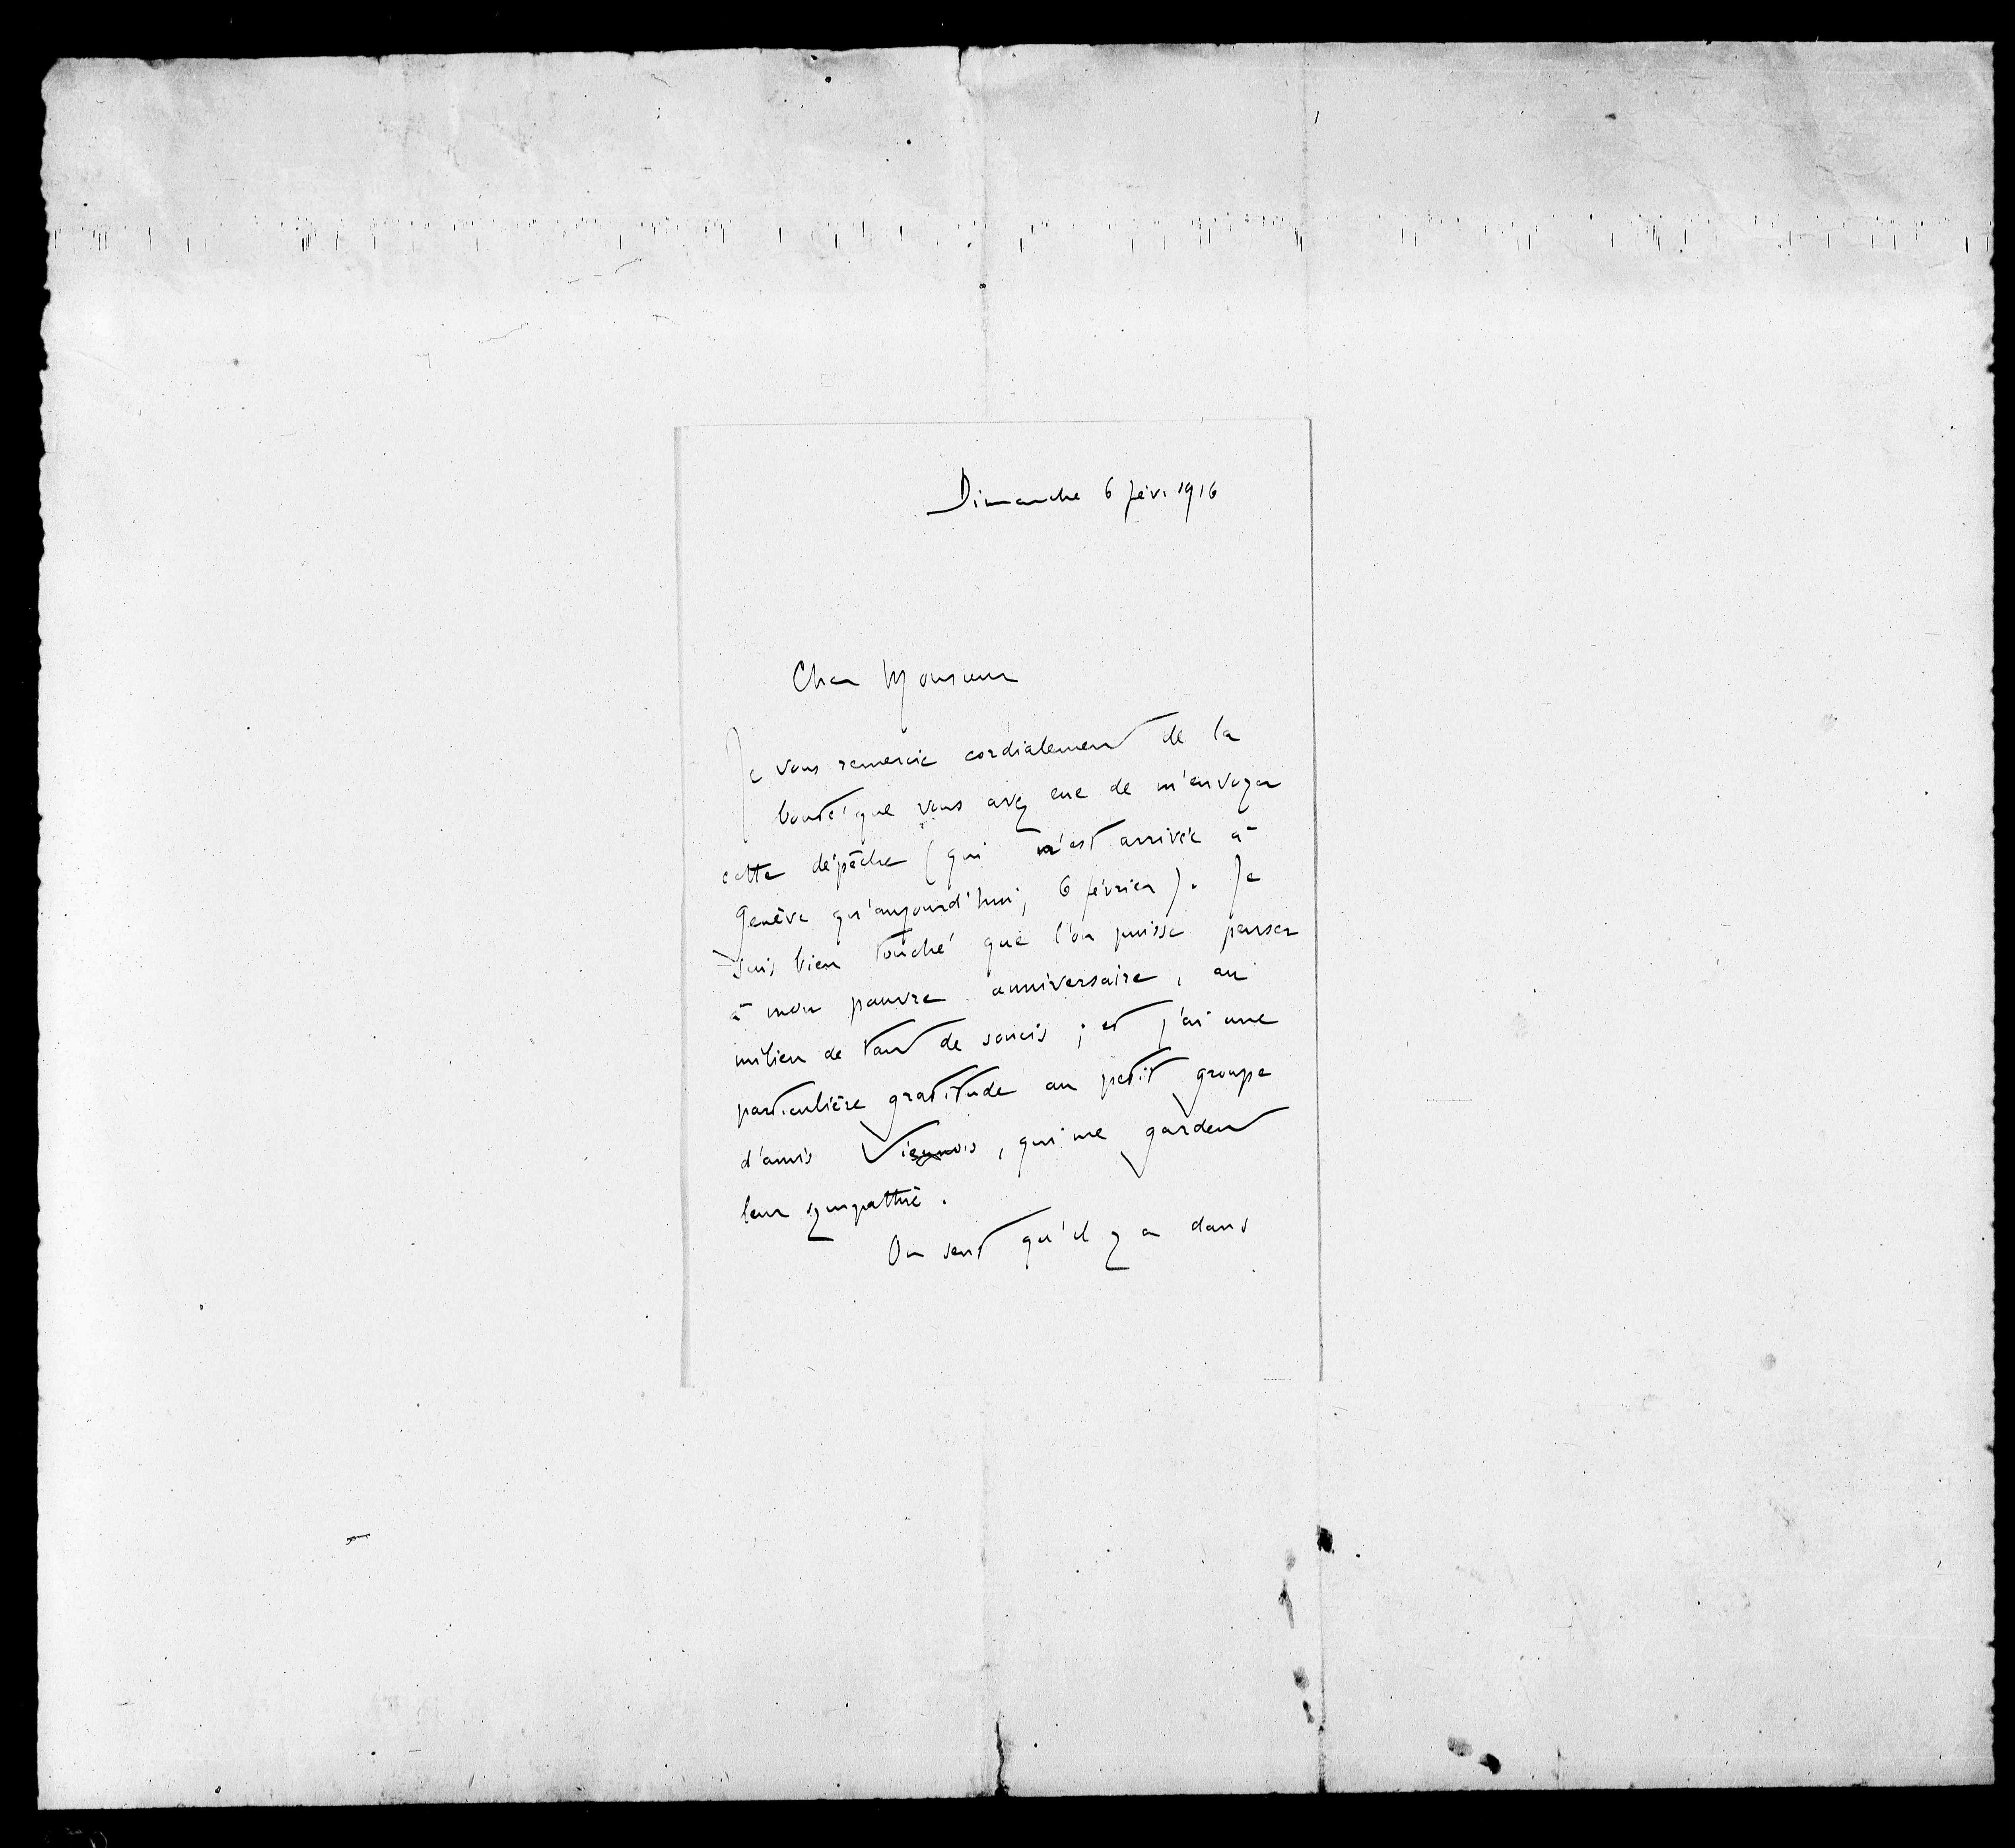 Dimanche 6 févr 1916
Cher Monsieur
Je vous remercie cordialement de la
bonté que vous avez eue de m'envoyer
cette dépêche (qui n'est arrivée à
Genève qu'aujourd'hui, 6 février). Je
suis bien touché que l'on puisse penser
à mon pauvre anniversaire, au
milieu de tant de soucis ; et j'ai une
particulière gratitude au petit groupe
d'amis Viennois, qui me gardent
leur sympathie.
On sent qu'il y a dans